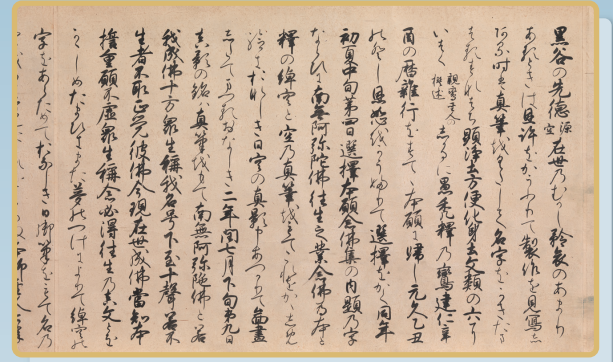 黒谷の先徳源空在世のむかし矜哀のあまり
あるときは恩許をかうふりて製作を見寫し
ある時は真筆をくたして名字をかきたま
はすすなはち顕浄土方便化身土文類の六に
いはく親鸞聖人撰述しかるに愚禿釋の鸞建仁辛
酉の暦雑行をすてて本願に帰し元久乙丑
のとし恩恕をかうふりて選擇をかく同年
初夏中旬第四日選擇本願念佛集の内題の字
ならひに南無阿弥陀佛往生之業念佛為本と
釋の綽空と空の真筆をもてこれをかかしめ
給ひきおなしき日空の真影申あつかりて畵畫
したてまつるおなしき二年閏七月下旬第九日
真影の銘は真筆をもて南無阿弥陀佛と若
我成佛十方衆生稱我名号下至十聲若不
生者不取正覚彼佛今現在世成佛當知本
誓重願不虚衆生稱念必得往生の真文とを
かかしめたまひまた夢のつけによりて綽空の
字をあらためておなしき日御筆をもて名の